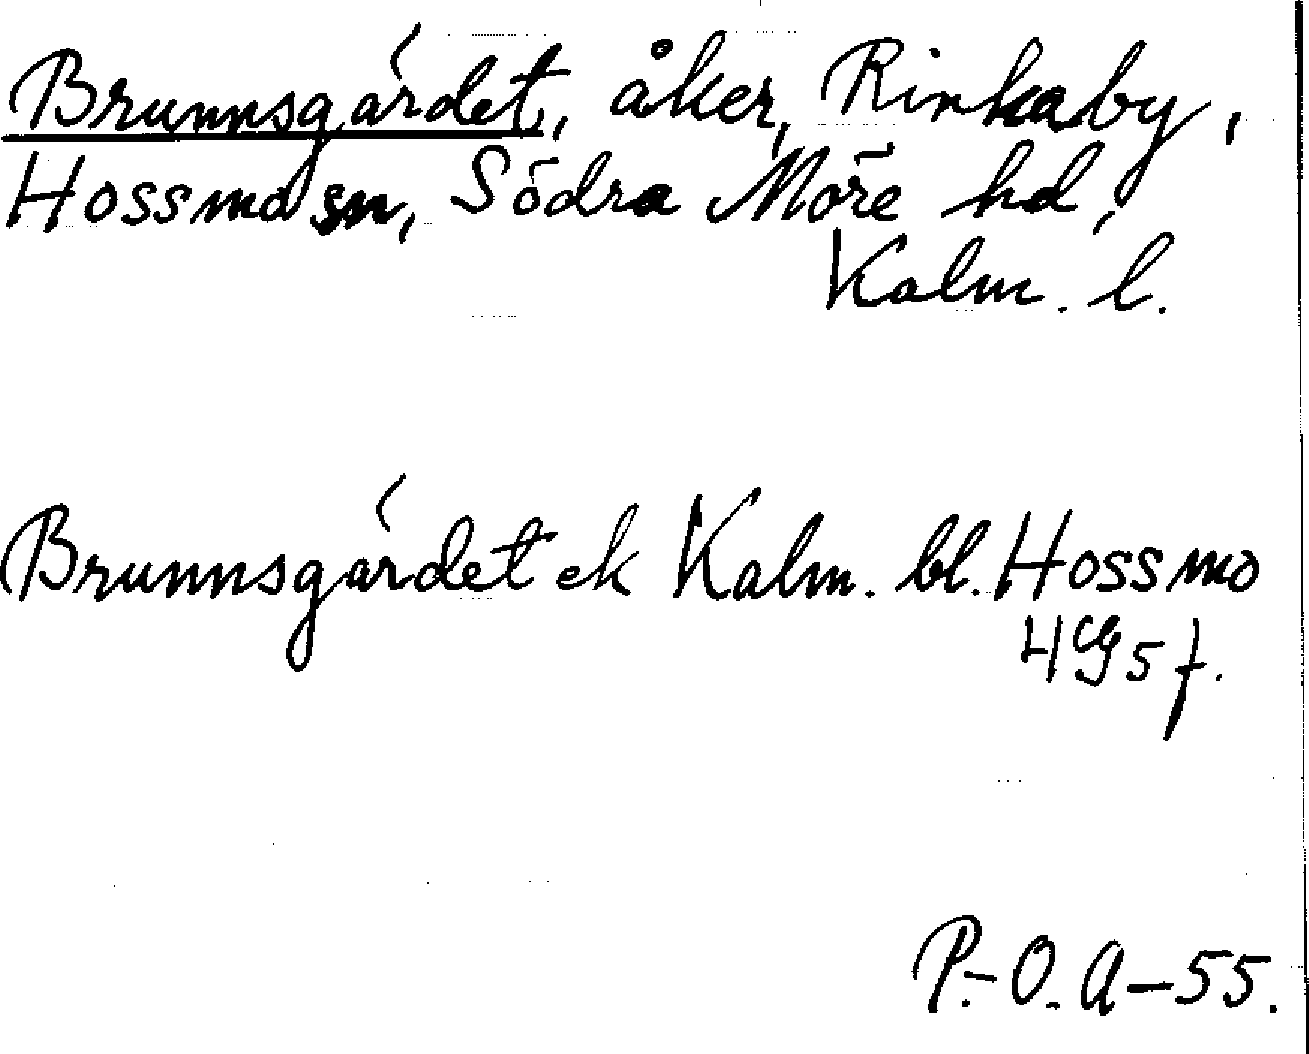 Brunnsgärdet, åker, Rinkaby,
Hossmo sn, Södra Möre hd,
Kalm. l.
Brunnsgärdet ek Kalm. bl. Hossmo
4G5f.
P.-O. A-55.